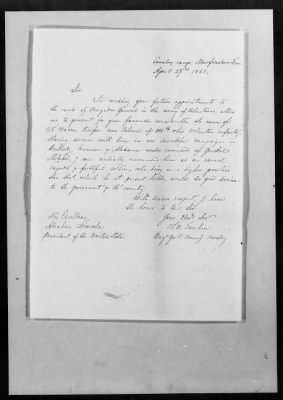 Cavalry camp, Murfreesboro Tenn
April 27th 1863.
Sir
In making your future appointments to
the rank of Brigadier General in the army of Volunteers, allow
me to present for your favorable consideration the name of
J Warren Keifer now Colonel of 110th Ohio Volunteer infantry.
Having served with him in an successful campaign in
Kentucky, Tennessee & Alabama under command of General
Mitchel, I can cordially recommend him as an earnest,
capable & faithful soldier, who being in a higher position
than that, which he at present holds, would do good service
to the Government & the country.
With warm respect, I have
the honor to be Sir
Your Obedt Servt
Brig Genl
His Excellency
Abraham Lincoln
President of the United States